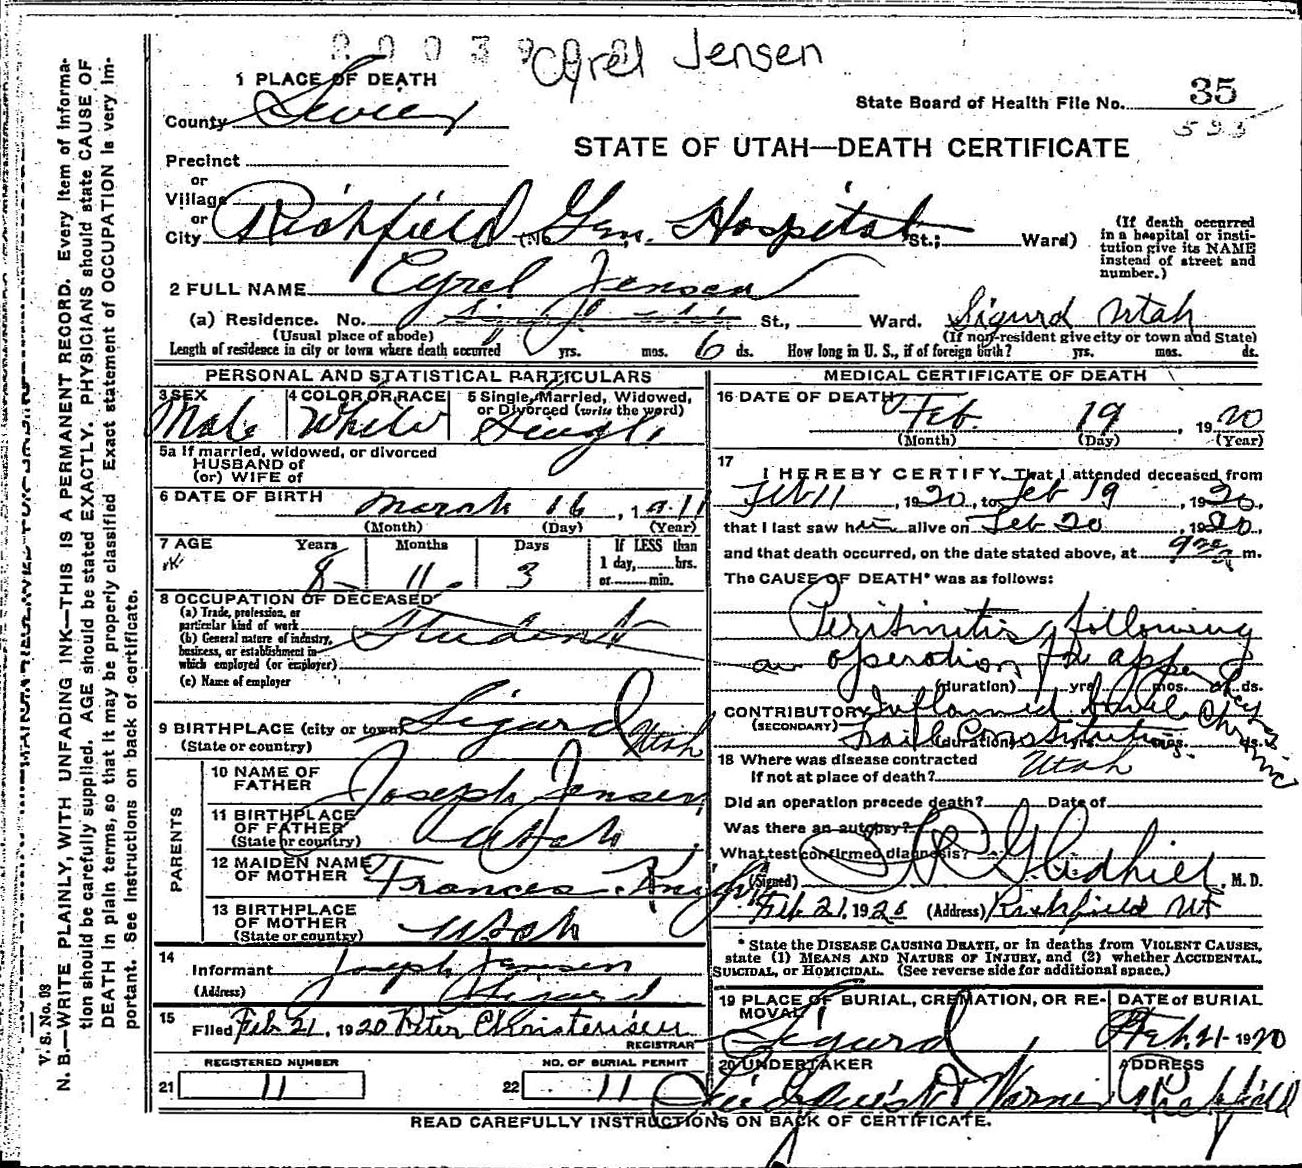 Cyrel Jensen
1 PLACE OF DEATH
County Sevier
State Board of Health File No. 35
593
STATE OF UTAH—DEATH CERTIFICATE
Precinct
or
Village
or
City Richfield (No. Gen. Hospital St.; Ward)
(If death occurred in a hospital or institution give its NAME instead of street and number.)
2 FULL NAME Cyrel Jensen
(a) Residence. No. St., Ward. Sigurd Utah
(Usual place of abode) (If non-resident give city or town and State)
Length of residence in city or town where death occurred yrs. mos. 6 ds. How long in U. S., if of foreign birth? yrs. mos. ds.
PERSONAL AND STATISTICAL PARTICULARS
3 SEX 4 COLOR OR RACE 5 Single, Married, Widowed, or Divorced (write the word)
Male White Single
5a If married, widowed, or divorced
HUSBAND of
(or) WIFE of
6 DATE OF BIRTH
March 16, 1911
(Month) (Day) (Year)
7 AGE Years Months Days If LESS than
1 day, hrs.
or min.
8 11 3
8 OCCUPATION OF DECEASED
(a) Trade, profession, or particular kind of work
Student
(b) General nature of industry, business, or establishment in which employed (or employer)
(c) Name of employer
9 BIRTHPLACE (city or town) Sigurd
(State or country) Utah
PARENTS
10 NAME OF FATHER Joseph Jensen
11 BIRTHPLACE OF FATHER (State or country) Utah
12 MAIDEN NAME OF MOTHER Frances Knight
13 BIRTHPLACE OF MOTHER (State or country) Utah
14
Informant Joseph Jensen
(Address) Sigurd
15
Filed Feb 21, 1920 Peter Christensen
REGISTRAR
REGISTERED NUMBER NO. OF BURIAL PERMIT
21 11 22 11
MEDICAL CERTIFICATE OF DEATH
16 DATE OF DEATH
Feb. 19, 1920
(Month) (Day) (Year)
17
I HEREBY CERTIFY, That I attended deceased from
Feb 11, 1920, to Feb 19, 1920,
that I last saw him alive on Feb 20, 1920,
and that death occurred, on the date stated above, at 9 m.
The CAUSE OF DEATH* was as follows:
Peritinitis, following
an operation for
(duration) yrs. mos. ds.
CONTRIBUTORY Inflamed Chronic
(SECONDARY)
Frail Constitution
(duration) yrs. mos. ds.
18 Where was disease contracted
If not at place of death? Utah
Did an operation precede death? Date of
Was there an autopsy?
What test confirmed diagnosis?
(Signed) , M. D.
Feb 21, 1920 (Address) Richfield Ut
* State the DISEASE CAUSING DEATH, or in deaths from VIOLENT CAUSES, state (1) MEANS AND NATURE OF INJURY, and (2) whether ACCIDENTAL, SUICIDAL, or HOMICIDAL. (See reverse side for additional space.)
19 PLACE OF BURIAL, CREMATION, OR REMOVAL DATE OF BURIAL
Sigurd Feb, 21- 1920
20 UNDERTAKER ADDRESS
Richfield
READ CAREFULLY INSTRUCTIONS ON BACK OF CERTIFICATE.
V. S. No. 98
N. B.—WRITE PLAINLY, WITH UNFADING INK—THIS IS A PERMANENT RECORD. Every item of information should be carefully supplied. AGE should be stated EXACTLY. PHYSICIANS should state CAUSE OF DEATH in plain terms, so that it may be properly classified. Exact statement of OCCUPATION is very important. See instructions on back of certificate.